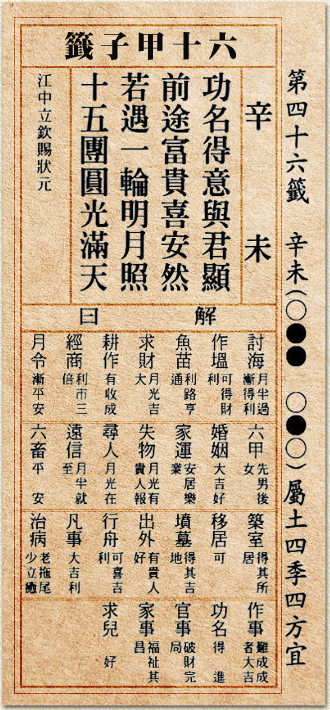 第四十六籤 辛未(○●● ○●○)屬土四季四方宜
六十甲子籤
辛未
功名得意與君顯
前途富貴喜安然
若遇一輪明月照
十五團圓光滿天
江中立欽賜狀元
解曰
討海 月半過漸得利
作塭 可得財利
魚苗 利路亨通
求財 月光吉大
耕作 有收成
經商 利市三倍
月令 漸平安
六甲 先男後女
婚姻 大吉好
家運 安居樂業
失物 月光有貴人報
尋人 月光在
遠信 月半就至
六畜 平安
築室 得其所居
移居 可
墳墓 得其吉地
出外 有貴人好
行舟 可喜吉利
凡事 大吉利
治病 老拖尾少立癒
作事 難成成者大吉
功名 得進
官事 破財完局
家事 福祉其昌
求兒 好